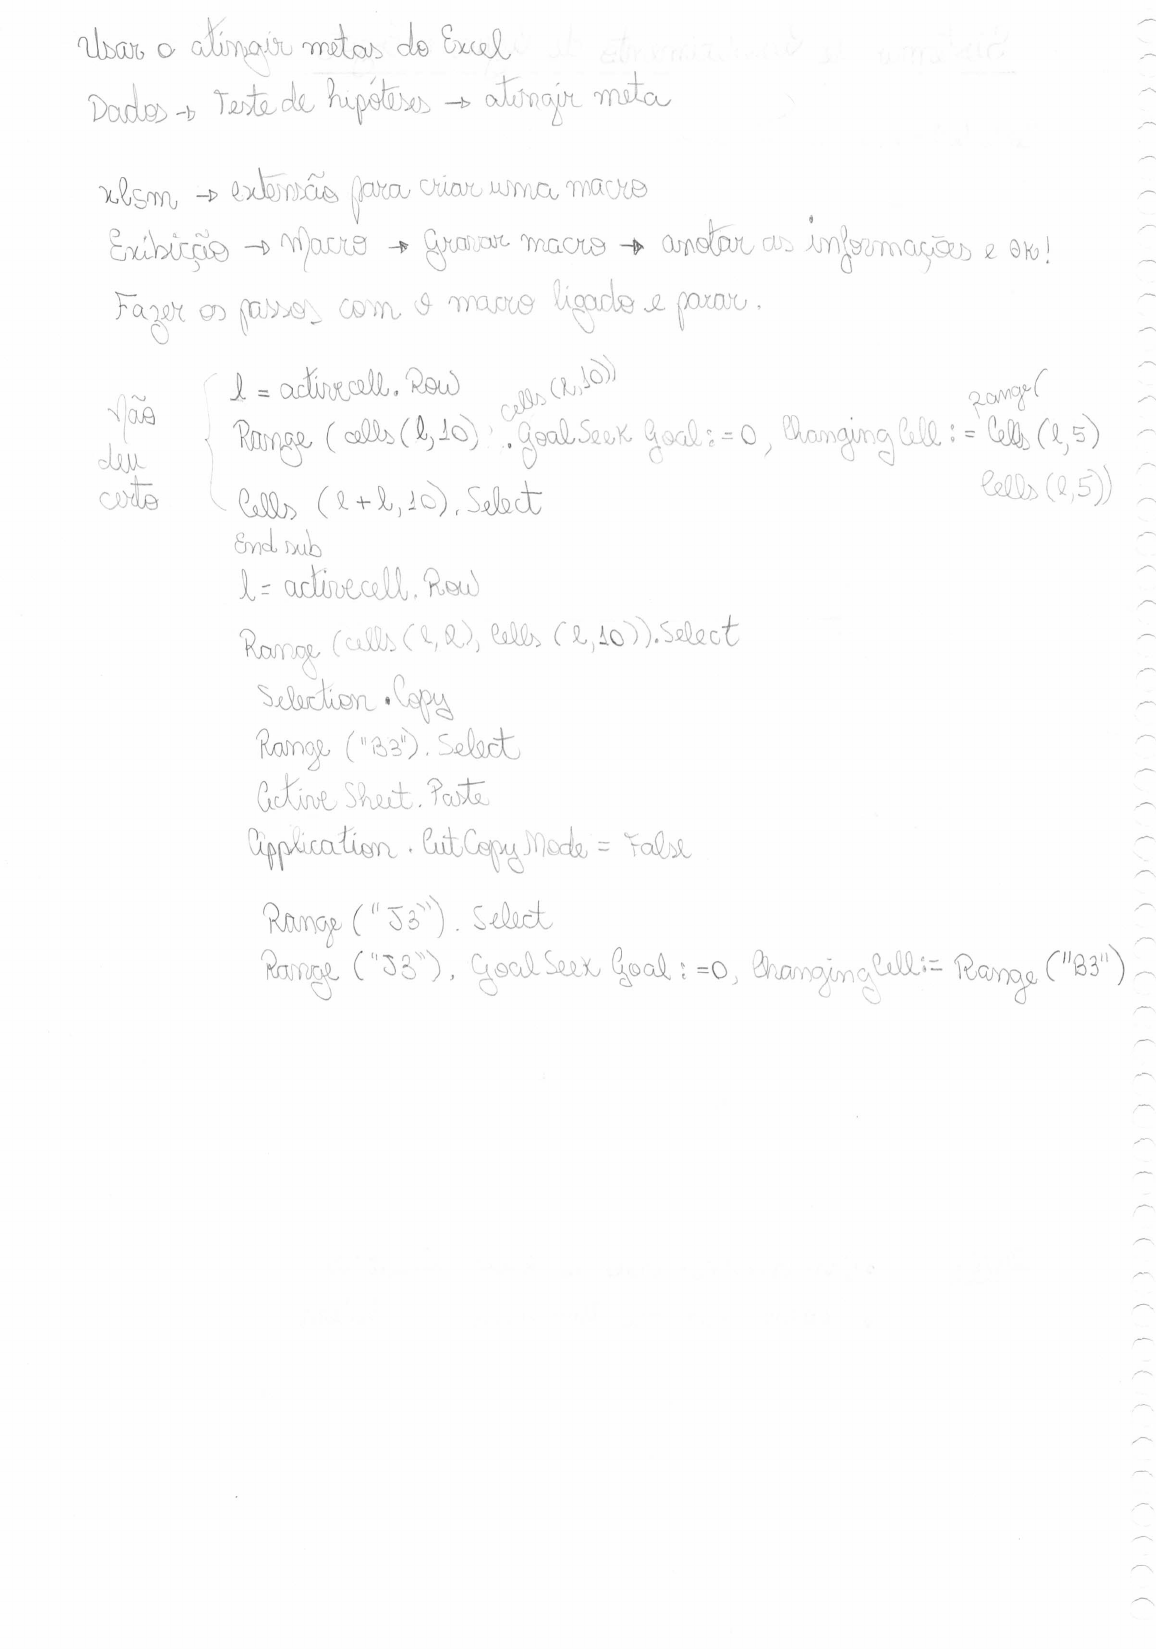 Usar o atingir metas do Excel
Dados → Teste de hipóteses → atingir meta
xlsm → extensão para criar uma macro
Exibição → Macro → Gravar macro → anotar as informações e OK!
Fazer os passos com o macro ligado e parar.
Não deu certo
l = activecell.Row
cells (l,10))
Range(
Range (cells (l,10) .GoalSeek Goal:=0, ChangingCell:= Cells (l,5)
Cells (l,5))
Cells (l+l,10).Select
End sub
l = activecell.Row
Range (cells (l,2), Cells (l,10)).Select
Selection.Copy
Range ("B3"). Select
Active Sheet. Paste
Application. CutCopyMode = False
Range ("J3"). Select
Range ("J3"). GoalSeek Goal:=0, ChangingCell:= Range ("B3")